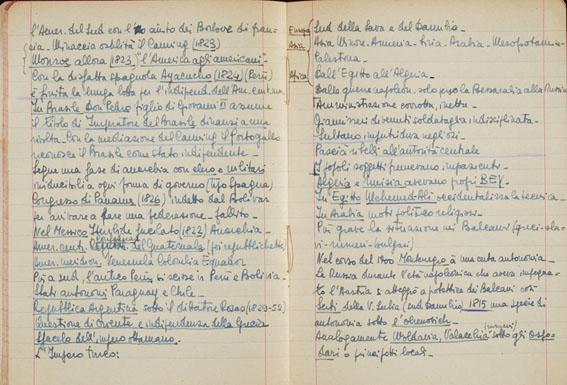 l'Amer. del Sud con l'aiuto dei Borboni di fran-
cia. Minaccia ostilità il Canning (1823)
Monroe allora (1823) "l'America agli americani"
Con la disfatta spagnola Ayacucho (1824) (Perù)
è finita la lunga lotta per l'independ. dell'Am. latina
In Brasile Don Pedro figlio di Giovanni II assume
il titolo di Imperatore del Brasile dinanzi a una
rivolta. Con la mediazione del Canning il Portogallo
riconosce il Brasile come stato indipendente.
Segue una fase di anarchia con clero e militari
irriducibili a ogni forma di governo (tipo Spagna)
Congresso di Panama (1826) indetto dal Bolivar
per arrivare a fare una federazione - fallito -
Nel Messico Iturbide fucilato (1823) Anarchia -
Amer. centr. del Guatemala (poi repubblichette)
Amer. meridion. Venezuela Colombia Equador
Più a sud, l'antico Perù si scisse in Perù e Bolivia -
Stati autonomi Paraguay e Chile -
Repubblica Argentina sotto il dittatore Rosas (1829-52)
Questione di Oriente e indipendenza della Grecia
Sfacelo dell'impero ottomano.
L'Impero turco:
Europa Sud della Sava e del Danubio -
Asia Asia Minore - Armenia - Siria - Arabia - Mesopotamia -
Palestina -
Africa Dall'Egitto all'Algeria -
Dalle guerre napoleon. solo perso la Bessarabia alla Russia
Amministrazione corrotta, inetta -
Giannizzeri divenuti soldataglia indisciplinata -
Sultano negli ozi -
Pascià ribelli all'autorità centrale
I popoli soggetti premevano impazienti -
Algeria e Tunisia avevano propri BEY -
In Egitto Mehemed Alì occidentalizza la tecnica -
In Arabia moti politico religiosi -
Più grave la situazione nei Balcani (greci-sla-
vi-rumeni-bulgari)
Nel corso del 1700 Montenegro à una certa autonomia -
La Russia durante l'età napoleonica che aveva impegna-
to l'Austria si atteggiò a protettrice dei Balcani così
Serbi della V. Serbia (sud Danubio) 1815 una specie di
autonomia sotto l'Obrenovich -
Analogamente Moldavia, Valacchia (rumeni) sotto gli Ospo-
dari o principotti locali -